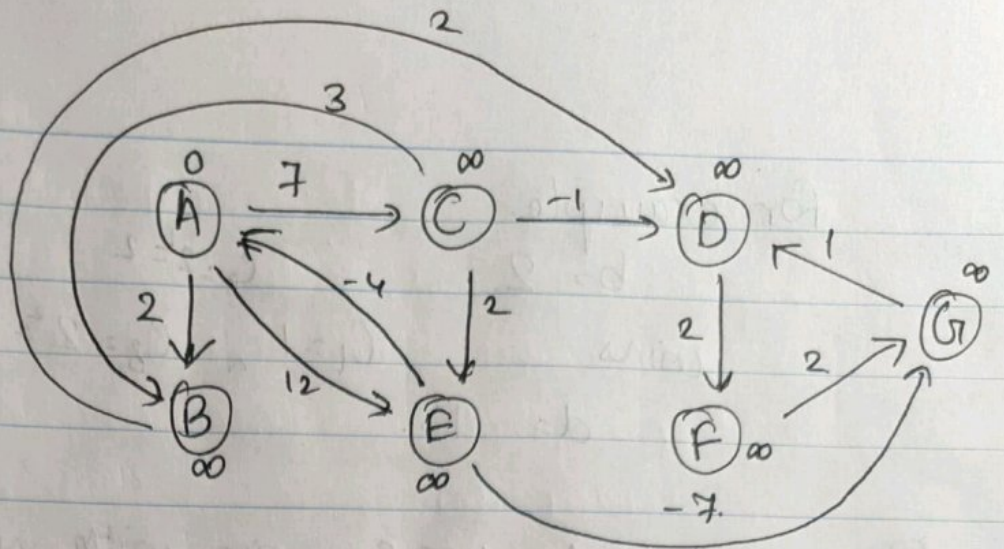 2
3
0 ∞ ∞
A 7 C -1 D 1 ∞
-4 G
2 2 2 2
12
B E F ∞
∞ ∞ -7.